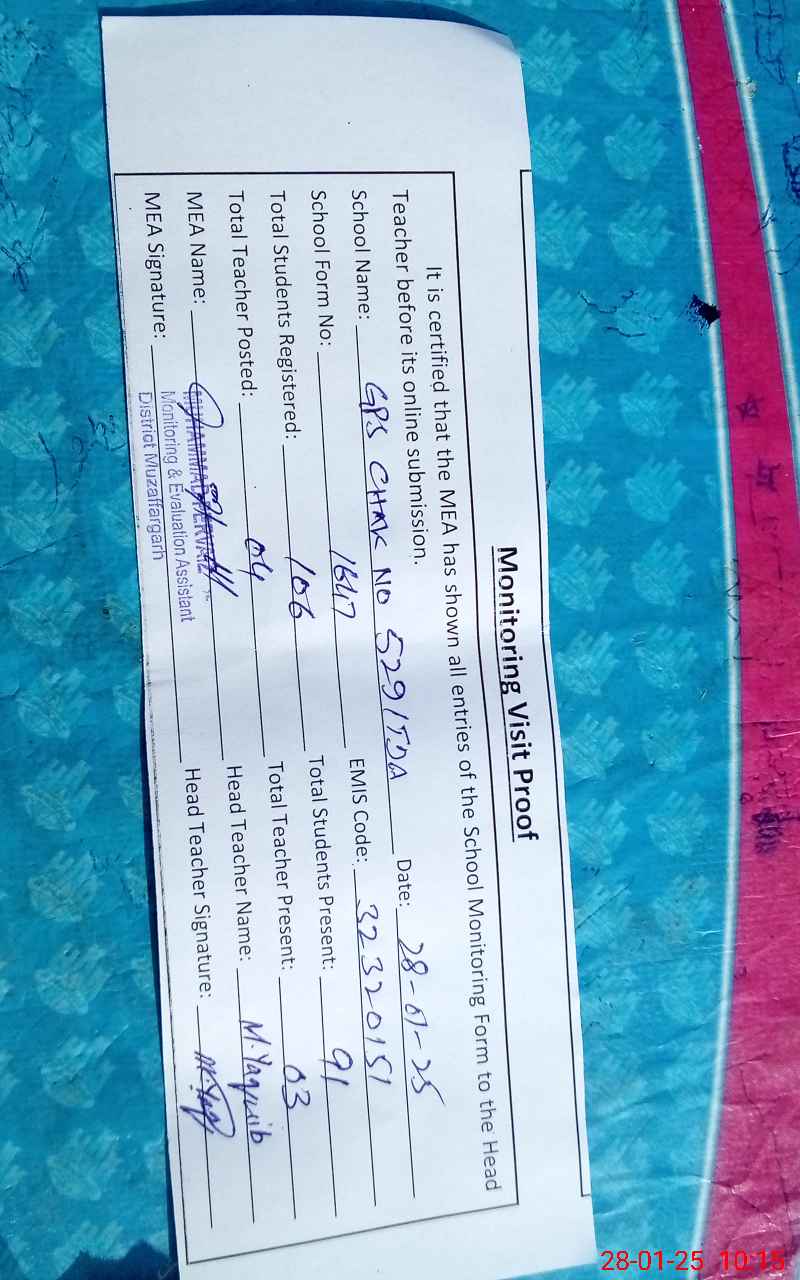 Monitoring Visit Proof
It is certified that the MEA has shown all entries of the School Monitoring Form to the Head
Teacher before its online submission.
School Name: GPS CHAK NO 529/TDA Date: 28-01-25
School Form No: 1647 EMIS Code: 32320151
Total Students Registered: 106 Total Students Present: 91
Total Teacher Posted: 04 Total Teacher Present: 03
MEA Name: MUHAMMAD PERVAIZ Head Teacher Name: M. YaqUib
Monitoring & Evaluation Assistant
MEA Signature: Head Teacher Signature: M. Yaq
District Muzaffargarh
28-01-25 10:15